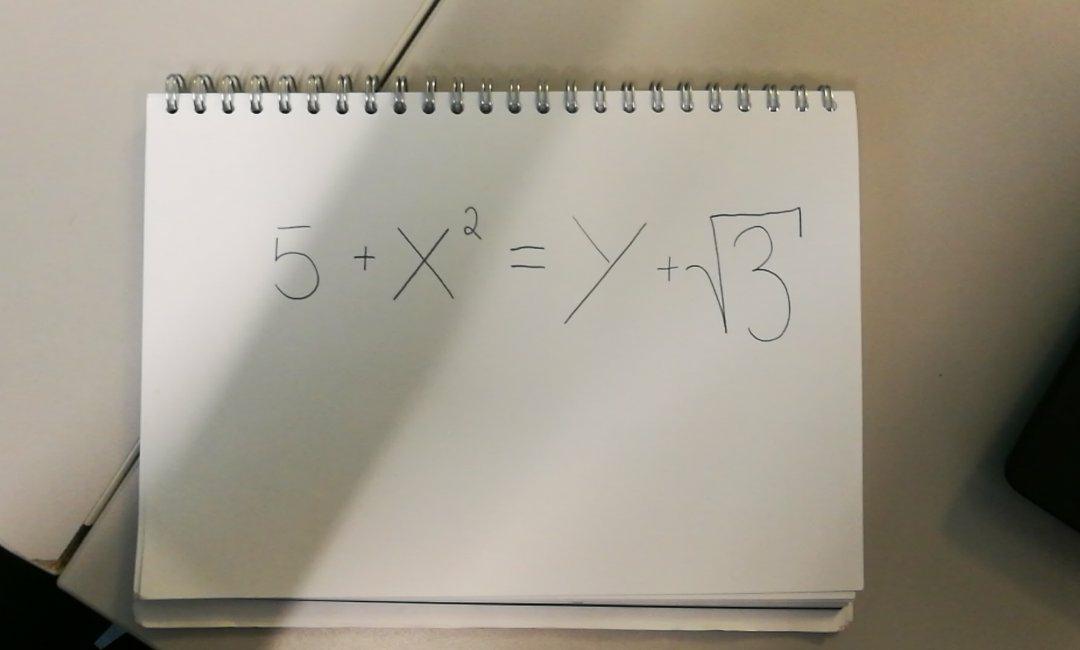 5 + X² = Y + √3